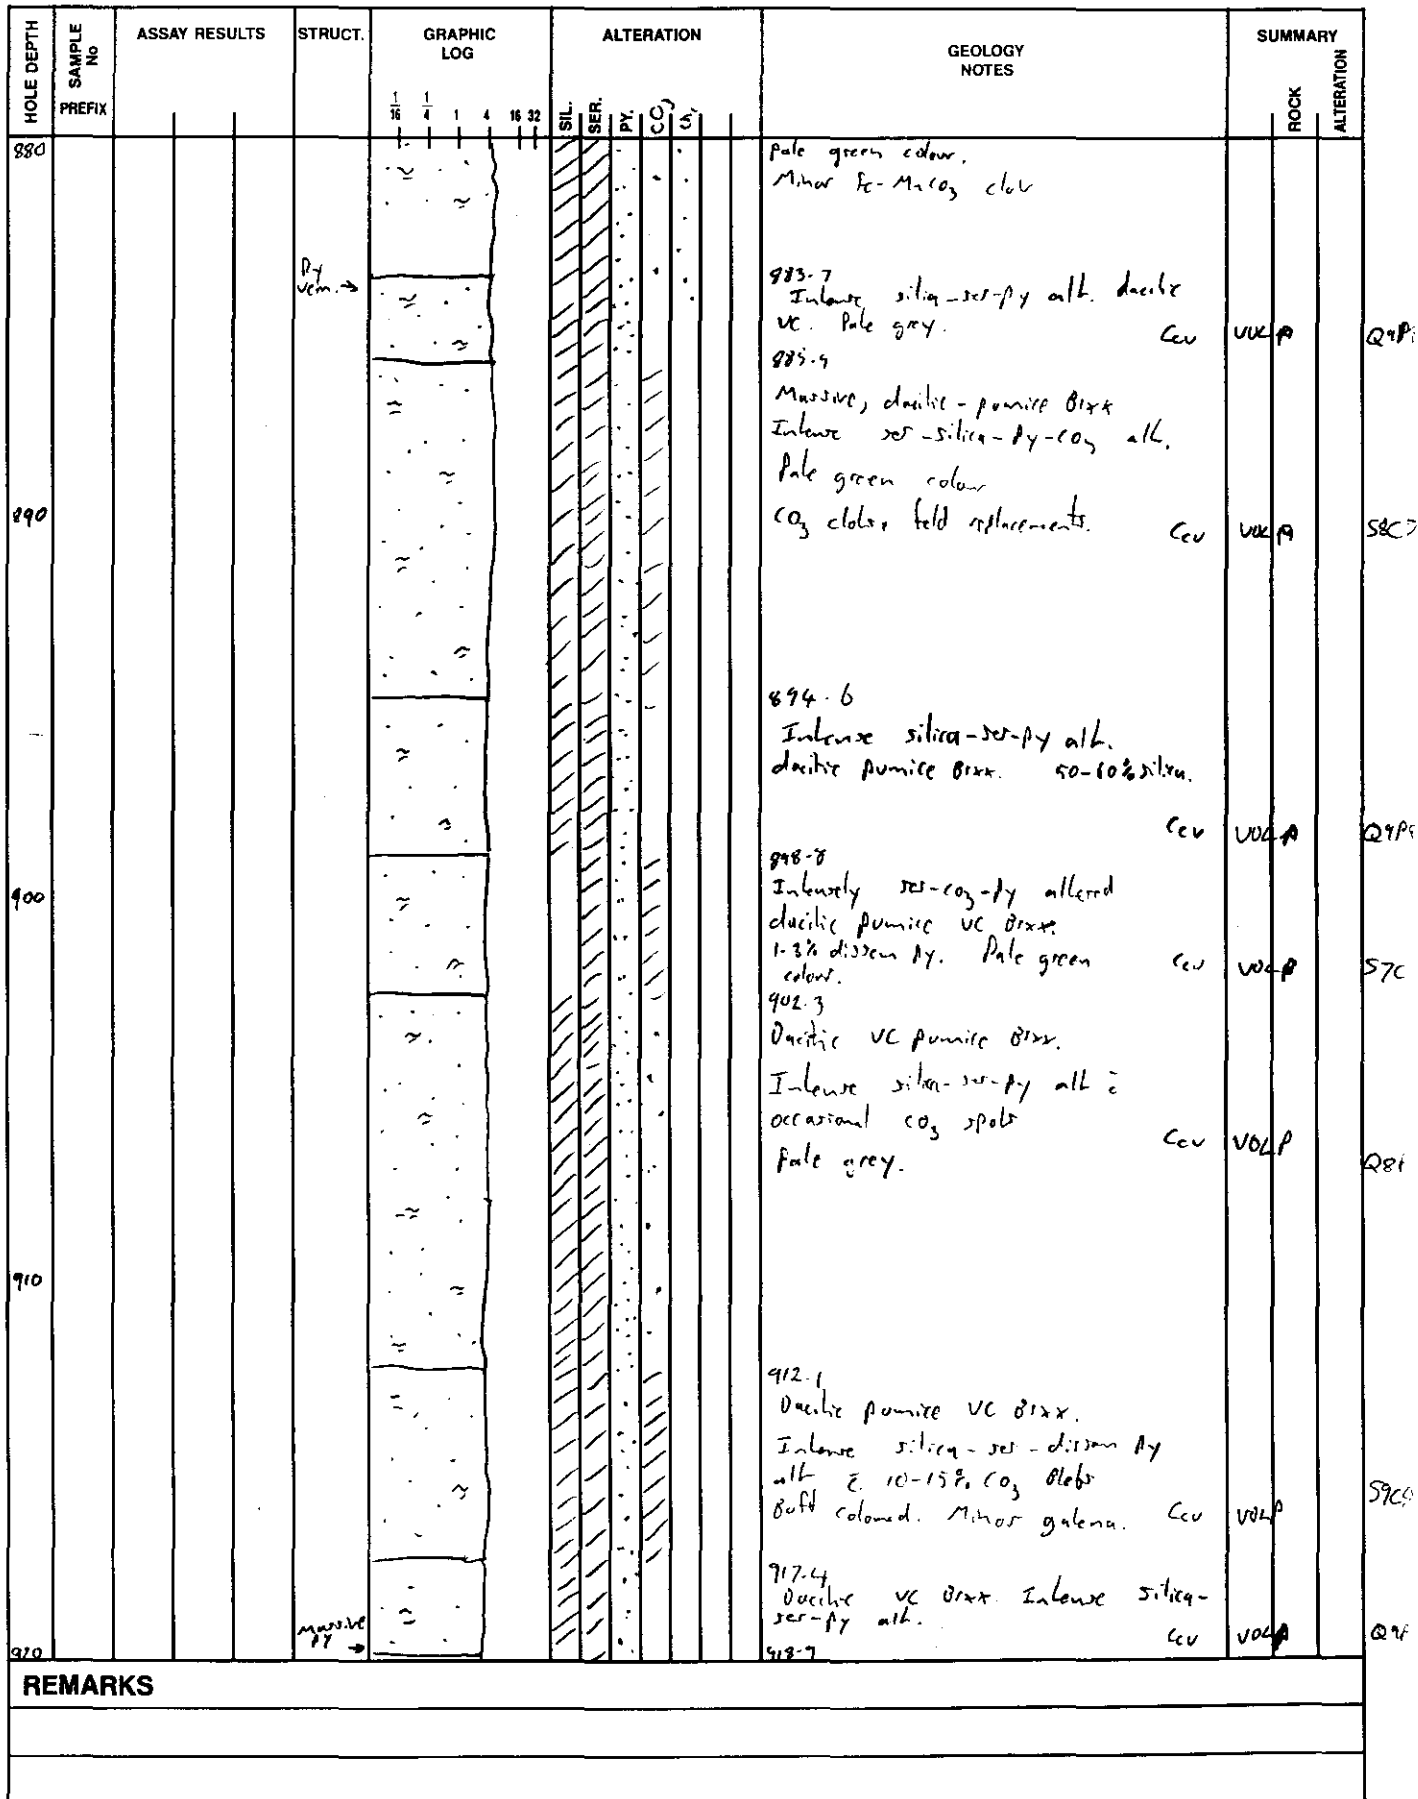 HOLE DEPTH
SAMPLE No
PREFIX
ASSAY RESULTS
STRUCT.
GRAPHIC
LOG
1/16 1/4 1 4 16 32
ALTERATION
SIL. SER. PY. CO3
GEOLOGY
NOTES
SUMMARY
ROCK
ALTERATION
880
Pale green colour.
Minor Fe-MnCO3
883.7
Py
vein →
Intense silica-ser-py alt. dacitic
VC. Pale grey.
Ccv VOL A
885.9
Massive, dacitic-pumice Brxx
Intense ser-silica-Py-CO3 alt.
Pale green colour
890
CO3 clots, feld replacements.
Ccv VOL A
894.6
Intense silica-ser-Py alt.
dacitic Pumice Brxx. 50-60% silica.
Ccv VOL A
898.8
900
Intensely ser-CO3-Py altered
dacitic pumice VC Brxx.
1-3% dissem Py. Pale green
colour.
Ccv VOL P S7C
902.3
Dacitic VC Pumice Brxx.
Intense silica-ser-Py alt c̄
occasional CO3 spots
Pale grey.
Ccv VOL P
910
912.1
Dacitic pumice VC Brxx.
Intense silica-ser-dissem Py
alt c̄ 10-15% CO3 Blebs
Buff coloured. Minor galena.
Ccv VOL P
917.4
Dacitic VC Brxx. Intense silica-
ser-Py alt.
Ccv VOL A
Massive
Py →
918.9
920
REMARKS